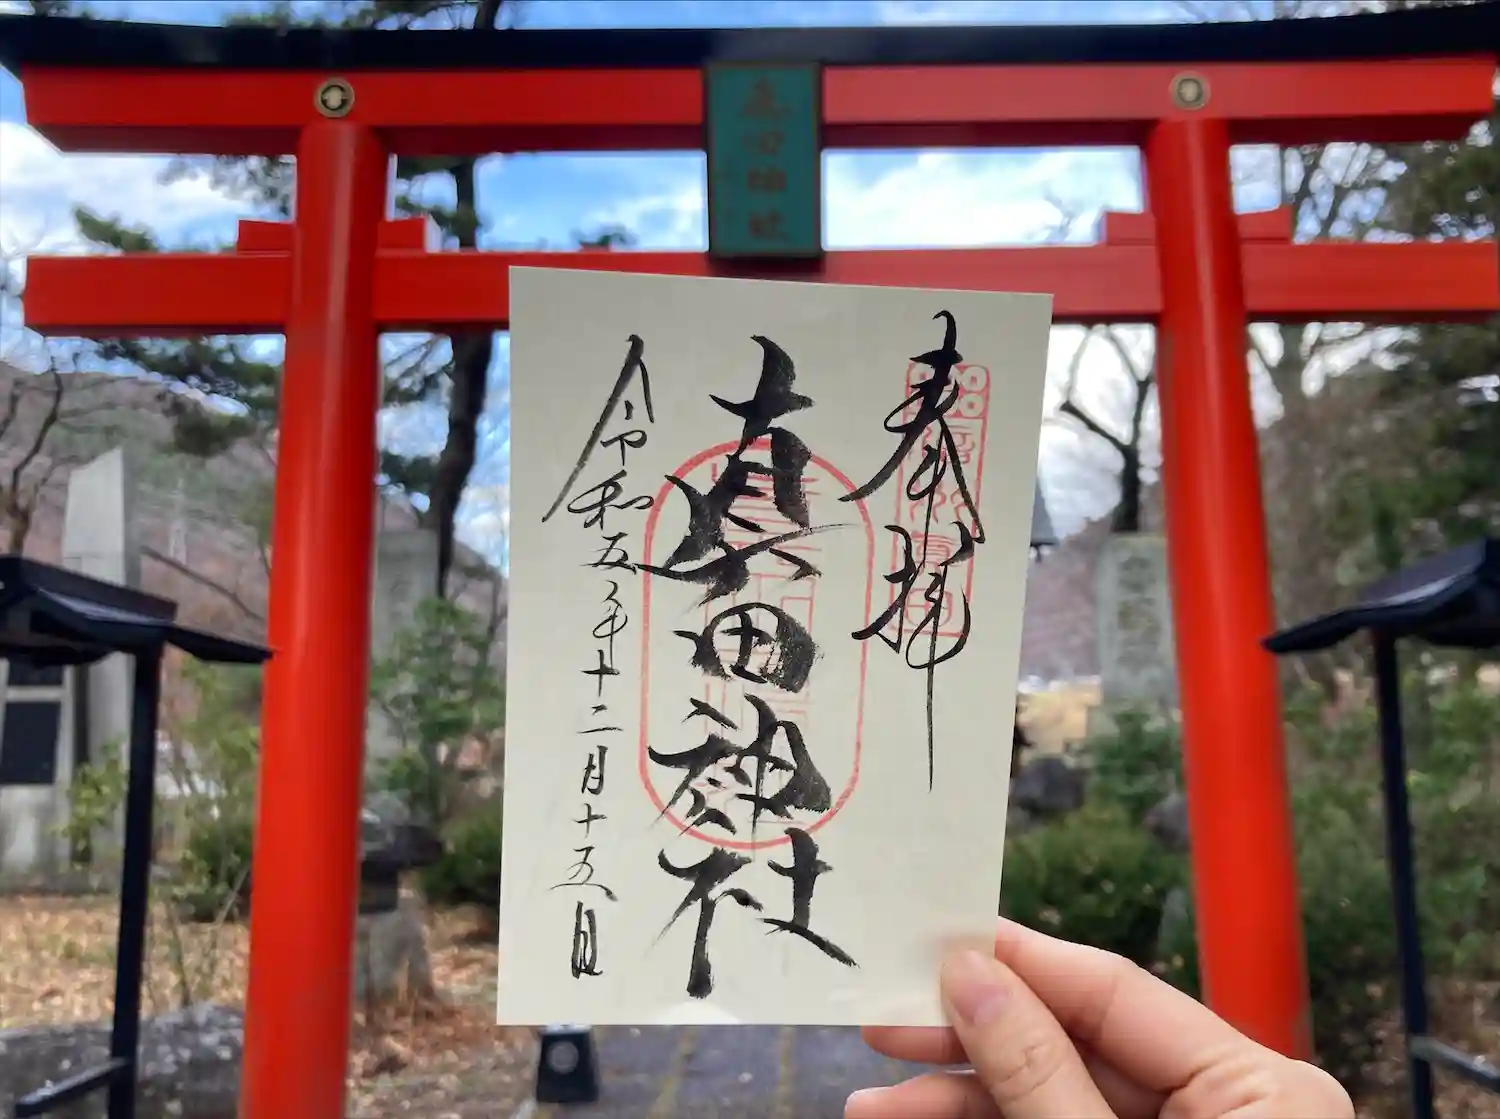 真田神社
奉拝
真田神社
令和五年十二月十五日